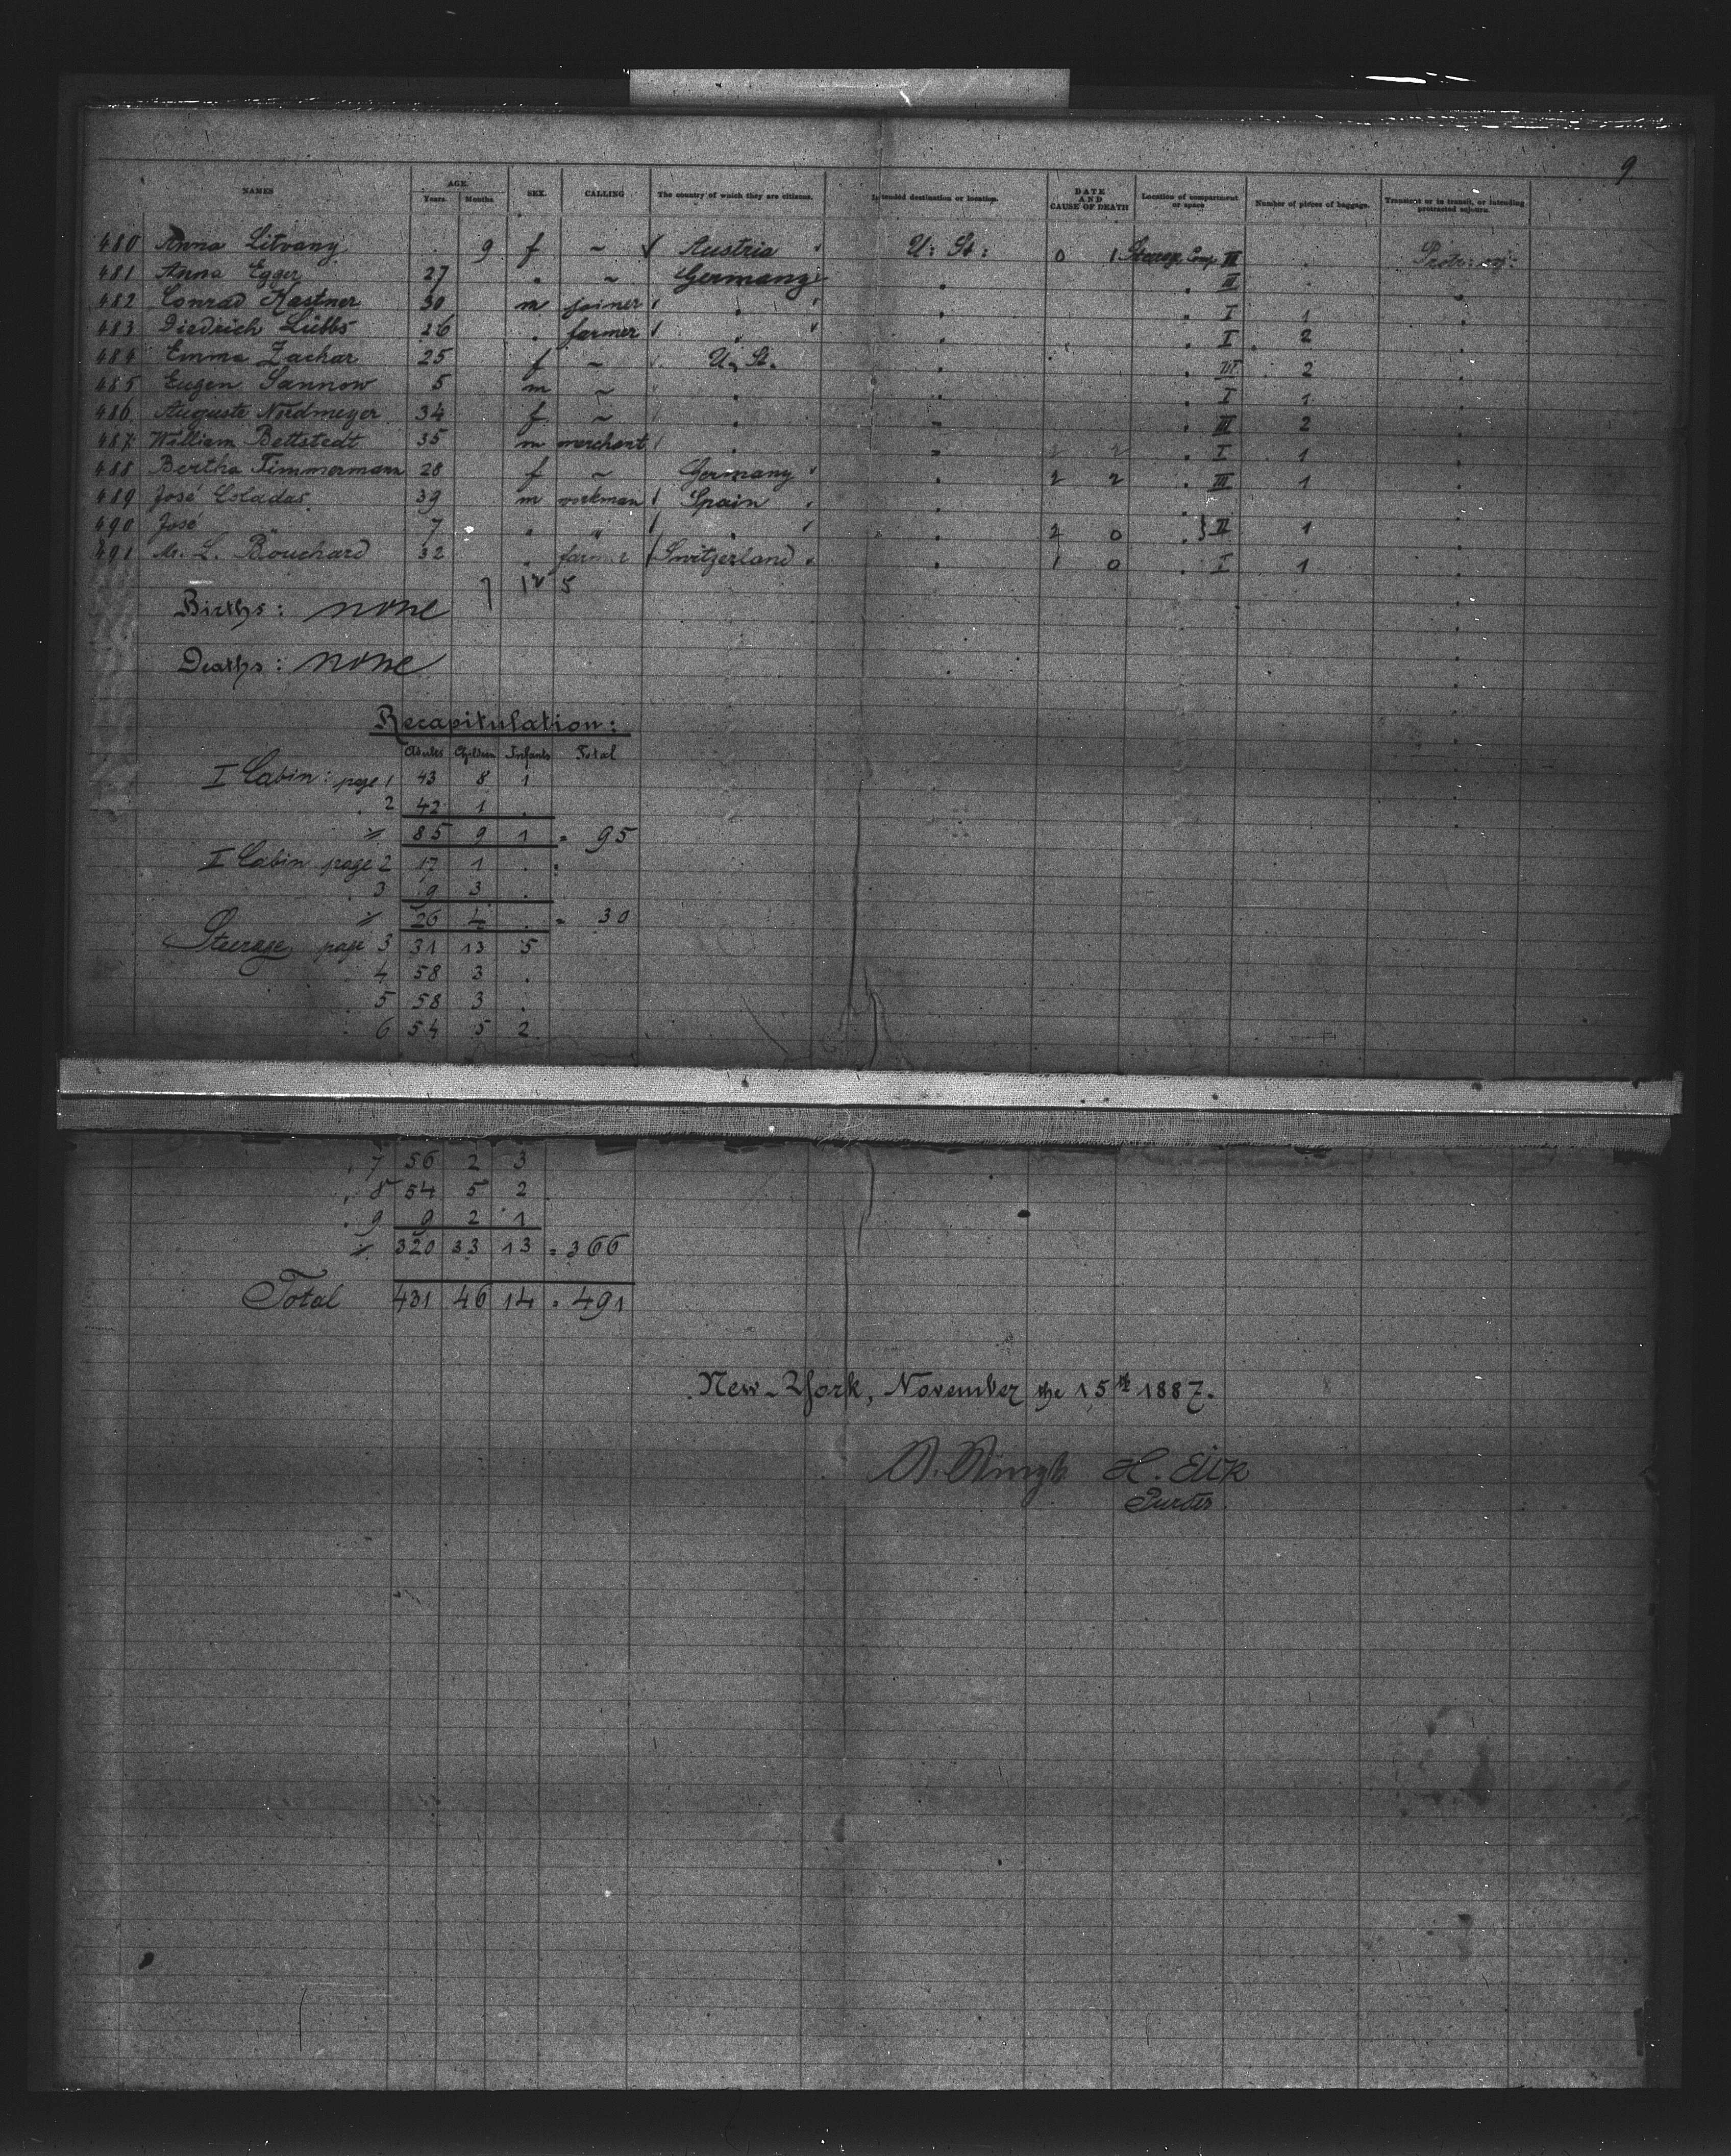 9
NAMES AGE. Years. Months. SEX. CALLING The country of which they are citizens. Intended destination or location. DATE AND CAUSE OF DEATH Location of compartment or space Number of pieces of baggage. Transient or in transit, or intending protracted sojourn.
480 Anna Litvany 9 f ~ Austria U: St: 0 1 Steerage Comp. III Protr: soj:
481 Anna Egger 27 " ~ Germany . . III .
482 Conrad Kastner 30 m joiner " . . I 1 .
483 Diedrich Lübbs 26 . farmer " . . I 2 .
484 Emma Zachar 25 f ~ U. St. . . III 2 .
485 Eugen Sannow 5 m ~ . . . I 1 .
486 Auguste Nordmeyer 34 f ~ . . . III 2 .
487 William Bettstedt 35 m merchant . . 2 2 . I 1 .
488 Bertha Timmermann 28 f ~ Germany . 2 2 . III 1 .
489 José Coladas 39 m workman Spain .
490 José " 7 " " . . 2 0 . } II 1
491 M. L. Bouchard 32 . farmer Switzerland . 1 0 . I 1 .
7 12 5
Births: none
Deaths: none
Recapitulation:
Adults Children Infants Total
I Cabin: page 1 43 8 1
. 2 42 1 .
85 9 1 = 95
II Cabin page 2 17 1 .
3 9 3 .
26 4 . = 30
Steerage page 3 31 13 5
4 58 3 .
. 5 58 3 .
. 6 54 5 2
. 7 56 2 3
. 8 54 5 2
. 9 9 2 1
320 33 13 = 366
Total 431 46 14 = 491
New-York, November the 15th 1887.
H. Eilk
Purser